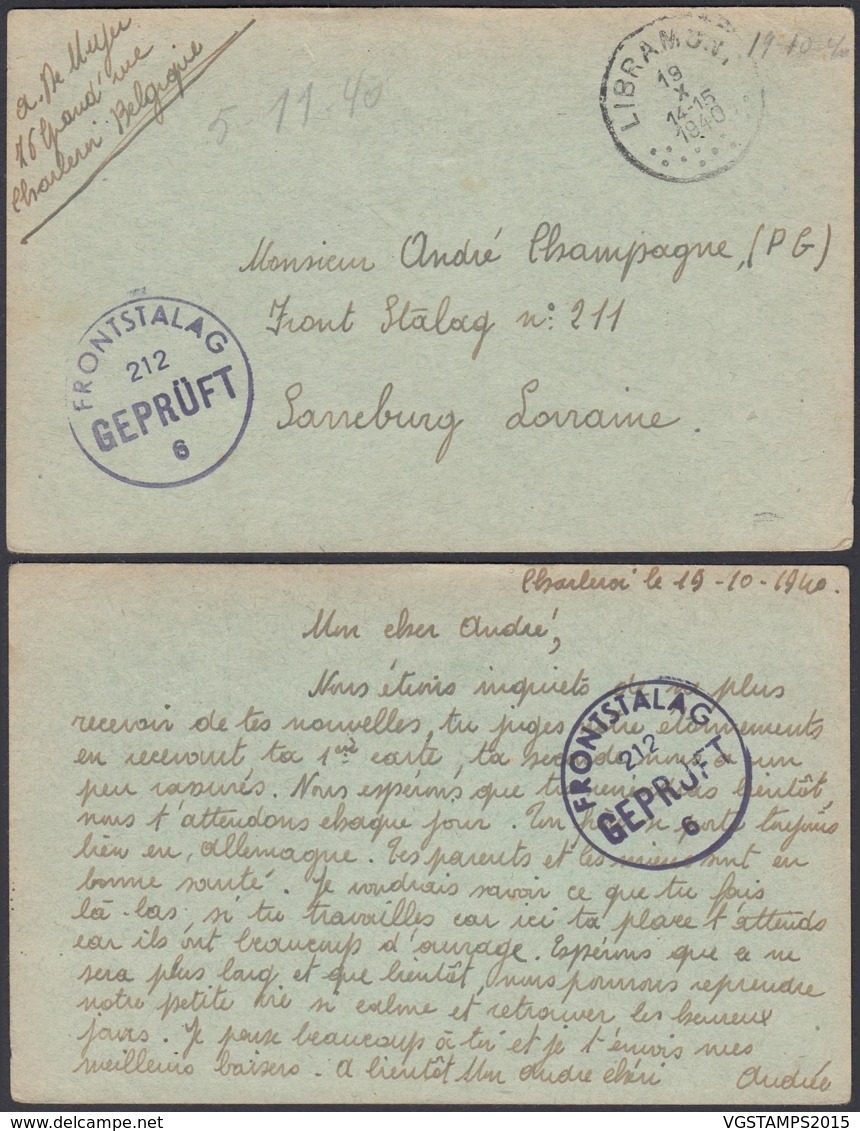 a. De Meyer
76 Grand'rue
Charleroi Belgique
5 11-40
LIBRAMONT
19
X
14-15
1940
19-10-40
Monsieur André Champagne, (P G)
Front Stalag n: 211
Sarreburg Lorraine.
FRONTSTALAG
212
GEPRÜFT
6
Charleroi le 19-10-1940.
Mon cher André,
Nous étions inquiets de ne plus
recevoir de tes nouvelles, tu juges notre étonnements
en recevant ta 1ère carte, ta seconde nous a un
peu rassurés. Nous espérons que tu bientôt,
nous t'attendons chaque jour. Ton se porte toujours
bien en, allemagne. Tes parents et les miens sont en
bonne santé. Je voudrais savoir ce que tu fais
là-bas, si tu travailles car ici ta place t'attends
car ils ont beaucoup d'ouvrage. Espérons que ce ne
sera plus long et que bientôt, nous pourrons reprendre
notre petite vie si calme et retrouver les heureux
jours. Je pense beaucoup à toi et je t'envois mes
meilleurs baisers. a bientôt Mon andre chéri Andrée
FRONTSTALAG
212
GEPRÜFT
6
VGSTAMPS2015